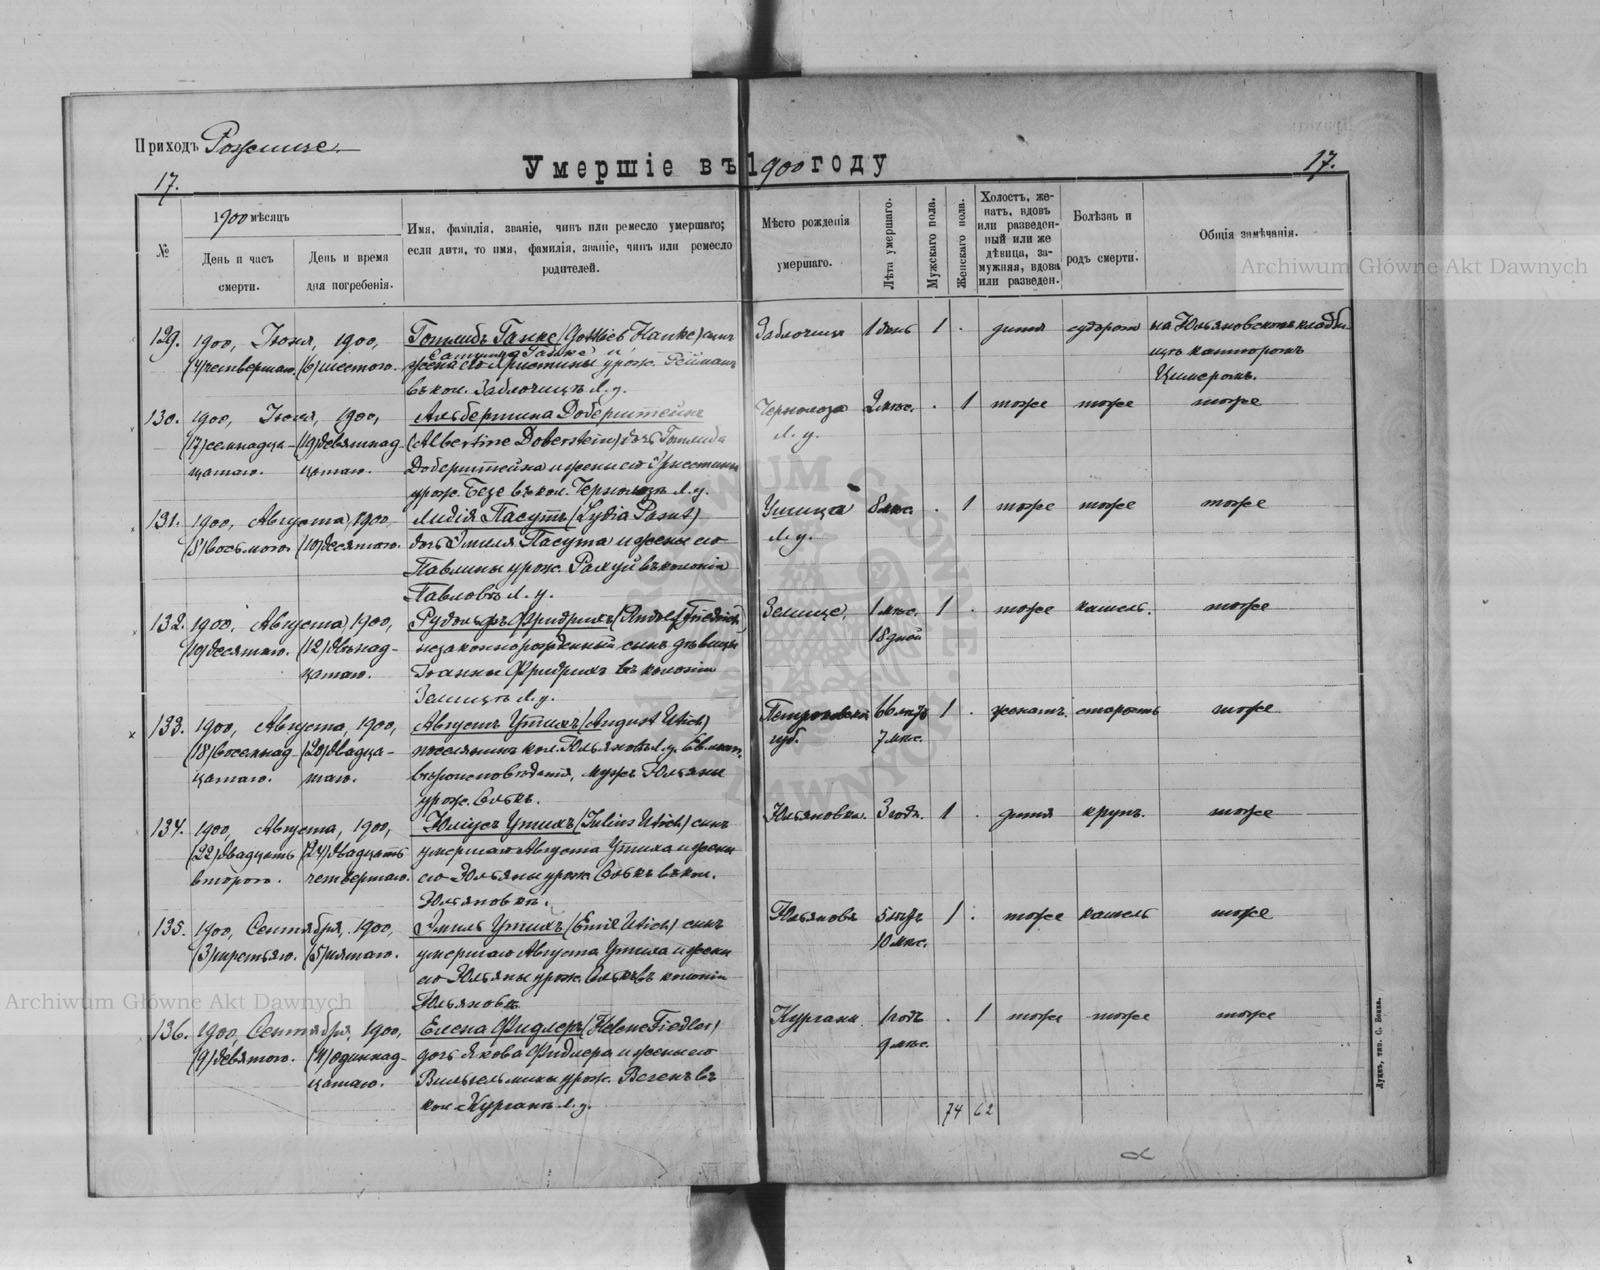 Приходъ Рожище.
Умершіе въ 1900 году
17.
17.
№
1900 мѣсяцъ
День и часъ
смерти.
День и время
дня погребенія.
Имя, фамилія, званіе, чинъ или ремесло умершаго;
если дитя, то имя, фамилія, званіе, чинъ или ремесло
родителей.
Мѣсто рожденія
умершаго.
Лѣта умершаго.
Мужскаго пола.
Женскаго пола.
Холостъ, же-
натъ, вдовъ
или разведен-
ный или же
дѣвица, за-
мужняя, вдова
или разведен.
Болѣзнь и
родъ смерти.
Общія замѣчанія.
Archiwum Główne Akt Dawnych
129. 1900, Іюня, 1900, Готлибъ Ганке (Gottlieb Hanke) сынъ
Ганке и
(4) четвертаго. (6) шестого. жены его Христины урож. Рейманъ
въ кол. Заблочицъ Л. у.
Заблочице 1 день 1 . дитя судороги на Юльяновскомъ кладби-
щѣ канторомъ
Цимеромъ.
130. 1900, Іюля, 1900, Альбертина Доберштейнъ
(17) семнадца- (19) девятнад- (Albertine Doberstein) дочь Готлиба
цатаго. цатаго. Доберштейна и жены его Христины
урож. Безе въ кол. Чернолозы Л. у.
Чернолоза 2 мѣс. . 1 тоже тоже тоже
Л. у.
131. 1900, Августа, 1900, Лидія Пасутъ (Lydia Pasut)
(8) восьмого. (10) десятого. дочь Эмиля Пасута и жены его
Павлины урож. въ колоніи
Павловкѣ Л. у.
8 мѣс. . 1 тоже тоже тоже
Л. у.
132. 1900, Августа, 1900, Рудольфъ Фридрихъ (Rudolf Friedrich)
(10) десятаго. (12) двѣнад- незаконнорожденный сынъ дѣвицы
цатаго. Іоанны Фридрихъ въ колоніи
Земицѣ Л. у.
Земице, 1 мѣс. 1 . тоже кашель. тоже
18 дней
133. 1900, Августа, 1900, Августъ Утихъ (August Utich)
(18) восемнад- (20) двадца- поселянинъ кол. Юльяновки Л. у. Еванг.
цатаго. таго. вѣроисповѣданія, мужъ Юльяны
урож.
Петроковск. 66 лѣтъ 1 . женатъ. старость тоже
губ. 7 мѣс.
134. 1900, Августа, 1900, Юліусъ Утихъ (Julius Utich) сынъ
(22) двадцать (24) двадцать умершаго Августа Утиха и жены
второго. четвертаго. его Юльяны урож. въ кол.
Юльяновкѣ.
Юльяновка. 3 года. 1 . дитя крупъ. тоже
135. 1900, Сентября, 1900, Эмиль Утихъ (Emil Utich) сынъ
(3) третьяго. (5) пятаго. умершаго Августа Утиха и жены
его Юльяны урож. въ колоніи
Юльяновкѣ
Юльяновка 5 лѣтъ 1 . тоже кашель тоже
10 мѣс.
Archiwum Główne Akt Dawnych
136. 1900, Сентября, 1900, Елена Фидлеръ (Helene Fiedler)
(9) девятого. (11) одиннад- дочь Якова Фидлера и жены его
цатаго. Вильгельмины урож. въ
кол. Курганъ Л. у.
Курганы 1 годъ . 1 тоже тоже тоже
9 мѣс.
74 62
Луцкъ, тип. С. Бокка.
ARCHIWUM GŁÓWNE AKT DAWNYCH